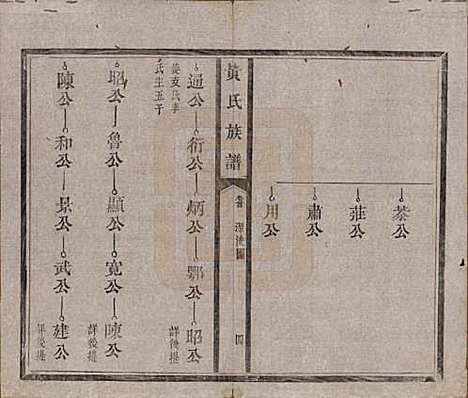 恭公
莊公
肅公
用公
黃氏族譜
源流圖
四
通公 衍公 炳公 鄂公 昭公 詳後提
姜支氏李
氏生五子
昭公 魯公 顯公 寬公 陳公 詳後提
陳公 和公 景公 武公 建公 詳後提